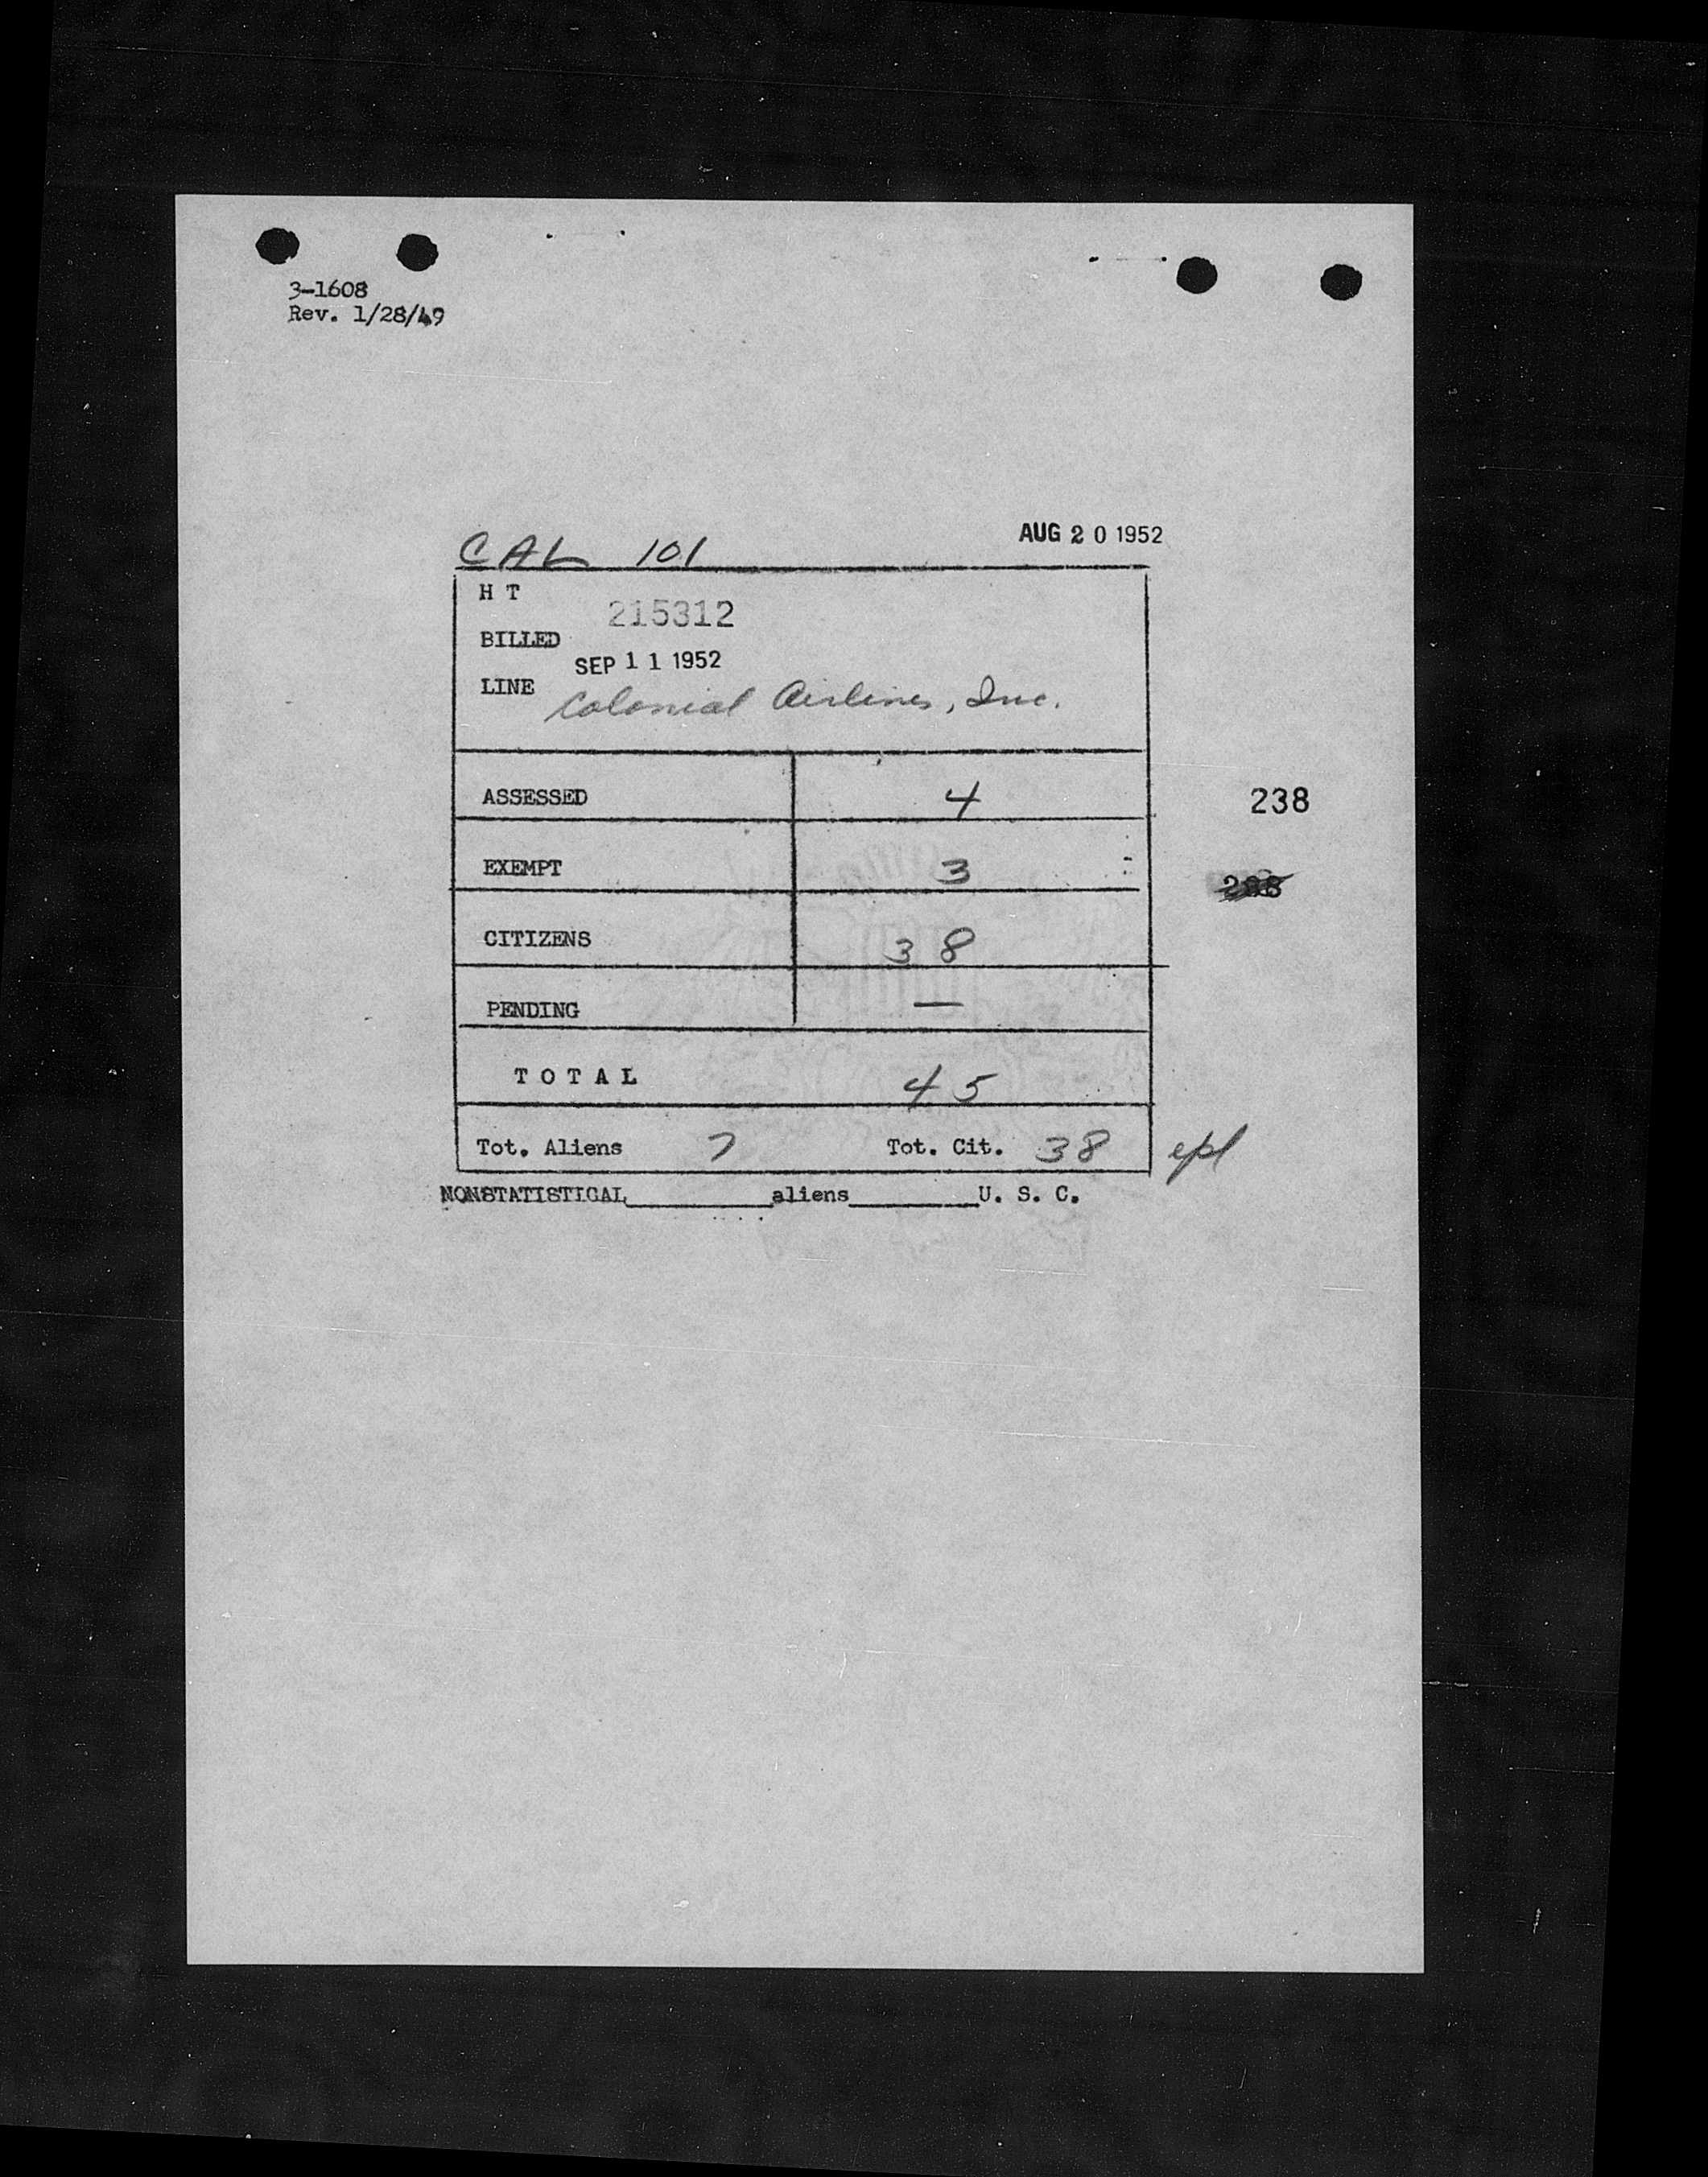 3-1608
Rev. 1/28/49
AUG 20 1952
CAL 101
H T
215312
BILLED
SEP 11 1952
LINE Colonial Airlines, Inc.
ASSESSED 4 238
EXEMPT 3
CITIZENS 38
PENDING —
T O T A L 45
Tot. Aliens 7 Tot. Cit. 38 epl
NONSTATISTICAL________aliens________U. S. C.